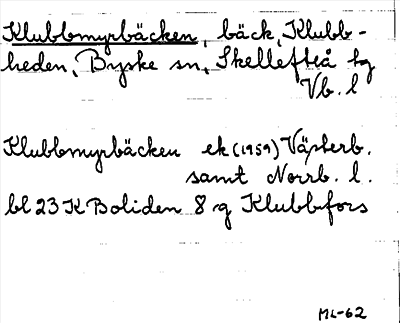 Klubbmyrbäcken, bäck, Klubb-
heden, Byske sn, Skellefteå tg
Vb. l
Klubbmyrbäcken ek (1959) Västerb.
samt Norrb. l.
bl 23 K Boliden 8 g Klubbfors
ML-62